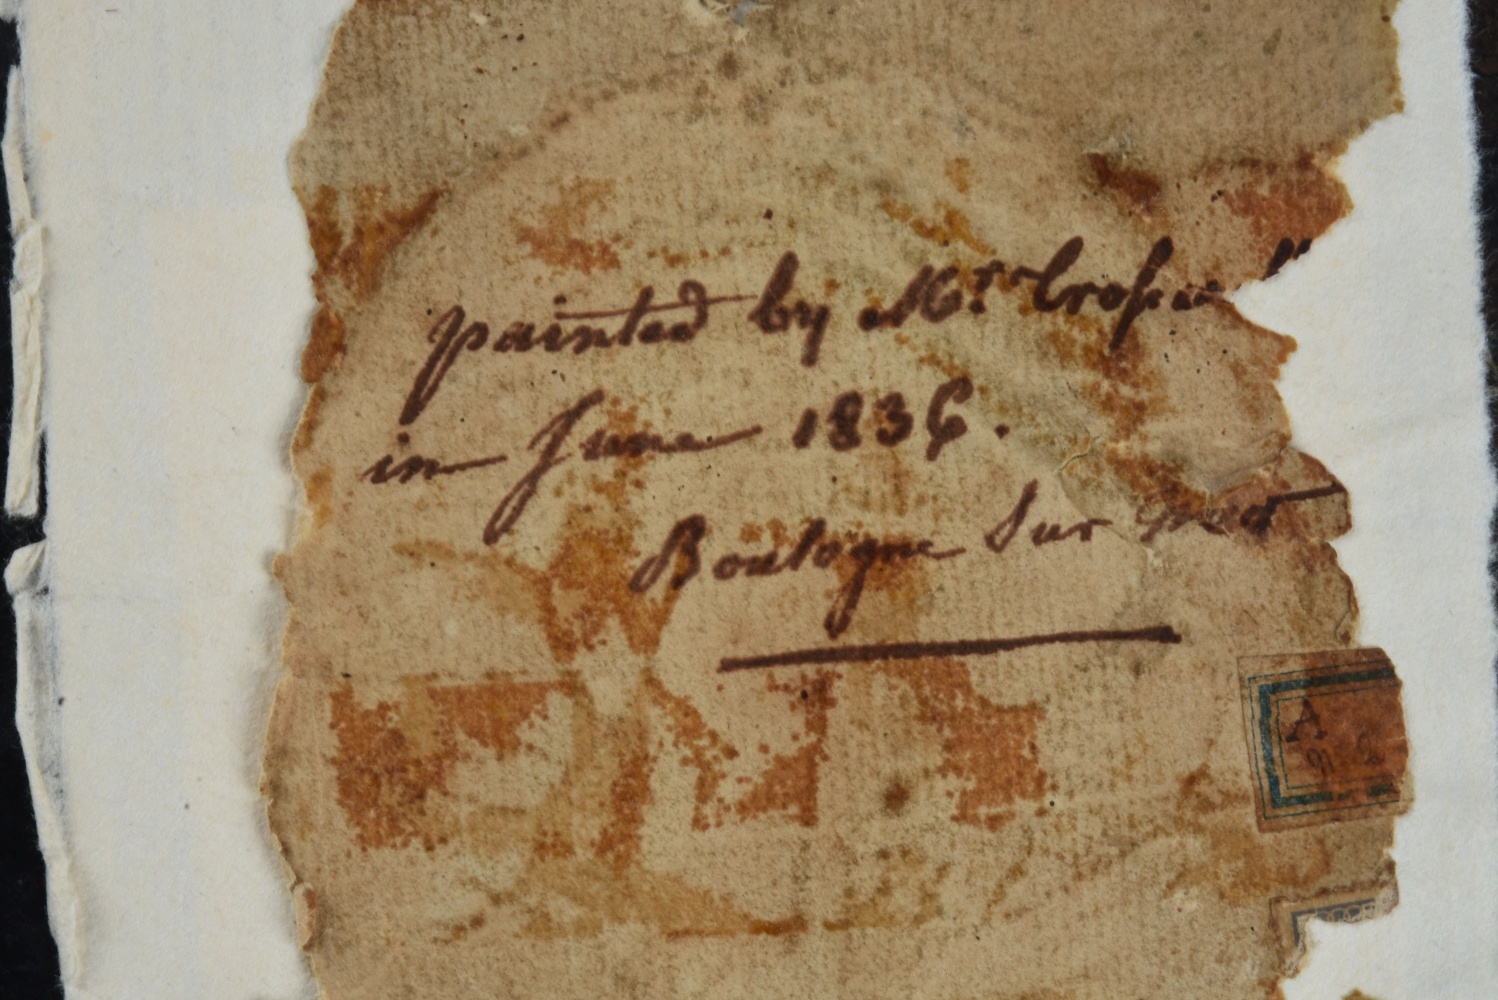 painted by Mr.
in June 1836.
Boulogne Sur Mer
A